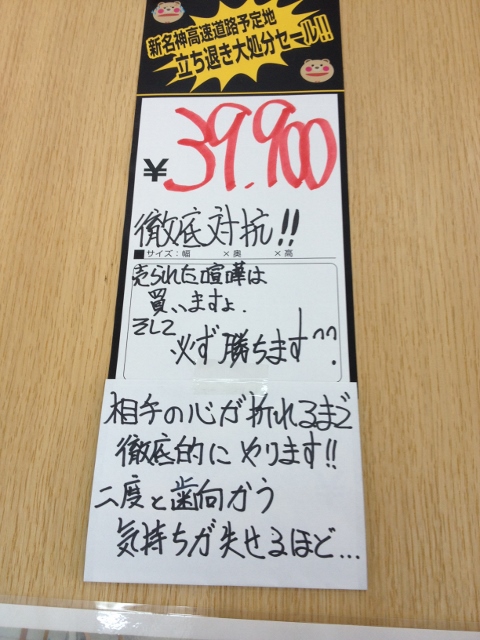 新名神高速道路予定地
立ち退き大処分セール!!
¥39.900
徹底対抗!!
■サイズ:幅 ×奥 ×高
売られた喧嘩は
買いますよ.
そして
必ず勝ちます^^.
相手の心が折れるまで
徹底的にやります!!
二度と歯向かう
気持ちが失せるほど...